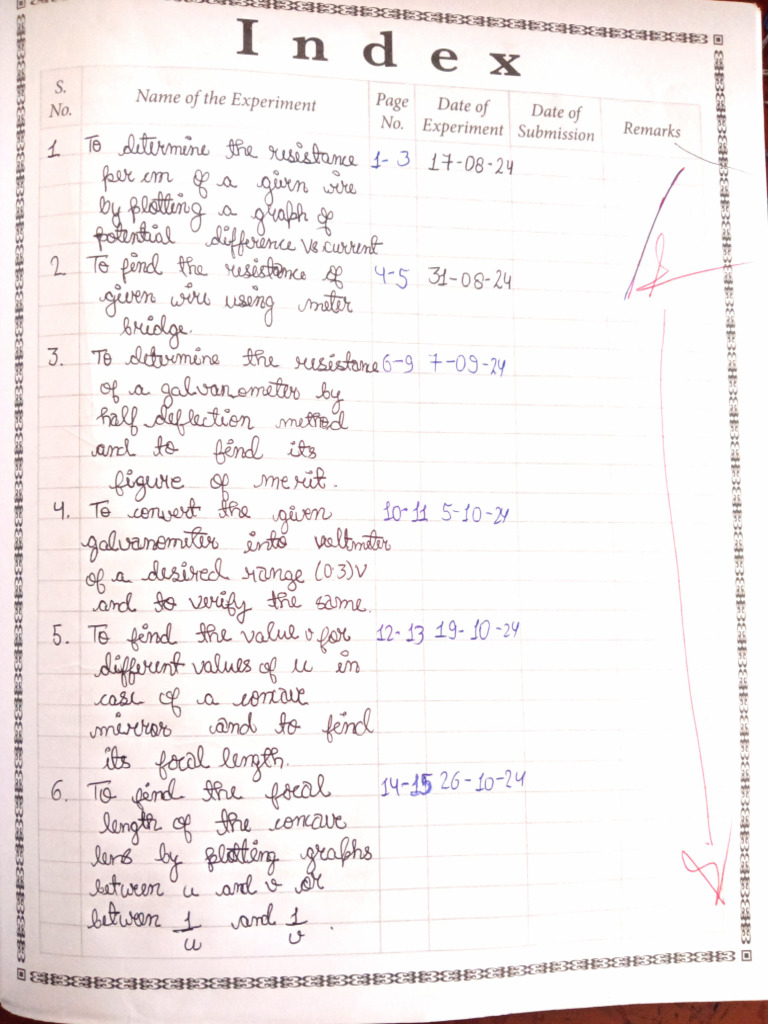 Index
S. No. Name of the Experiment Page No. Date of Experiment Date of Submission Remarks
1 To determine the resistance 1-3 17-08-24
per cm of a given wire
by plotting a graph of
potential difference vs current
2. To find the resistance of 4-5 31-08-24
given wire using meter
bridge.
3. To determine the resistance 6-9 7-09-24
of a galvanometer by
half deflection method
and to find its
figure of merit.
4. To convert the given 10-11 5-10-24
galvanometer into voltmeter
of a desired range (0.3)V
and to verify the same.
5. To find the value v for 12-13 19-10-24
different values of u in
case of a concave
mirror and to find
its focal length.
6. To find the focal 14-15 26-10-24
length of the concave
lens by plotting graphs
between u and v or
between 1/u and 1/v .